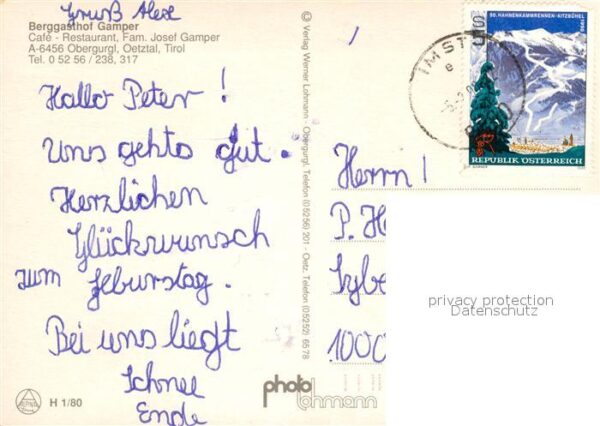 Gruß Alex
Berggasthof Gamper
Café - Restaurant, Fam. Josef Gamper
A-6456 Obergurgl, Oetztal, Tirol
Tel. 0 52 56 / 238, 317
Hallo Peter !
Uns gehts gut.
Herzlichen
Glückwunsch
zum Geburstag.
Bei uns liegt
Schnee
Ende
H 1/80
© Verlag Werner Lohmann · Obergurgl, Telefon (05256) 201 · Oetz, Telefon (05252) 6578
photo
lohmann
50. HAHNENKAMMRENNEN-KITZBÜHEL
REPUBLIK ÖSTERREICH
IMST
Herrn !
P. H
Sybe
1000
privacy protection
Datenschutz